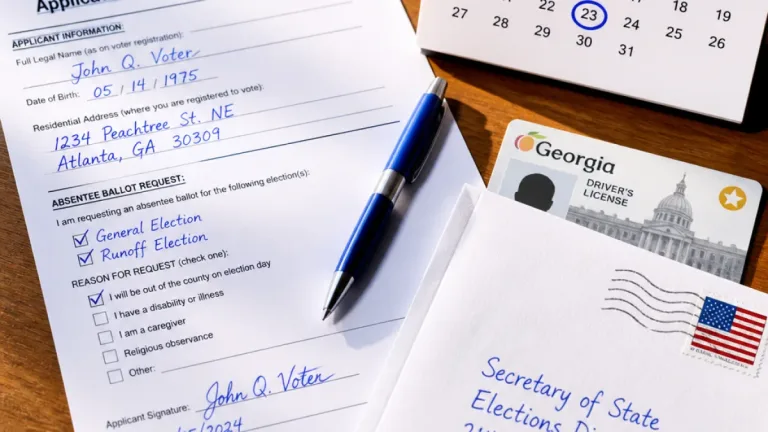 Application
APPLICANT INFORMATION:
Full Legal Name (as on voter registration):
John Q. Voter
Date of Birth: 05 / 14 / 1975
Residential Address (where you are registered to vote):
1234 Peachtree St. NE
Atlanta, GA 30309
ABSENTEE BALLOT REQUEST:
I am requesting an absentee ballot for the following election(s):
General Election
Runoff Election
REASON FOR REQUEST (check one):
I will be out of the county on election day
I have a disability or illness
I am a caregiver
Religious observance
Other:
Applicant Signature: John Q. Voter
2024
22 18 19
27 28 23 24 25 26
29 30 31
Georgia
DRIVER'S
LICENSE
Secretary of State
Elections